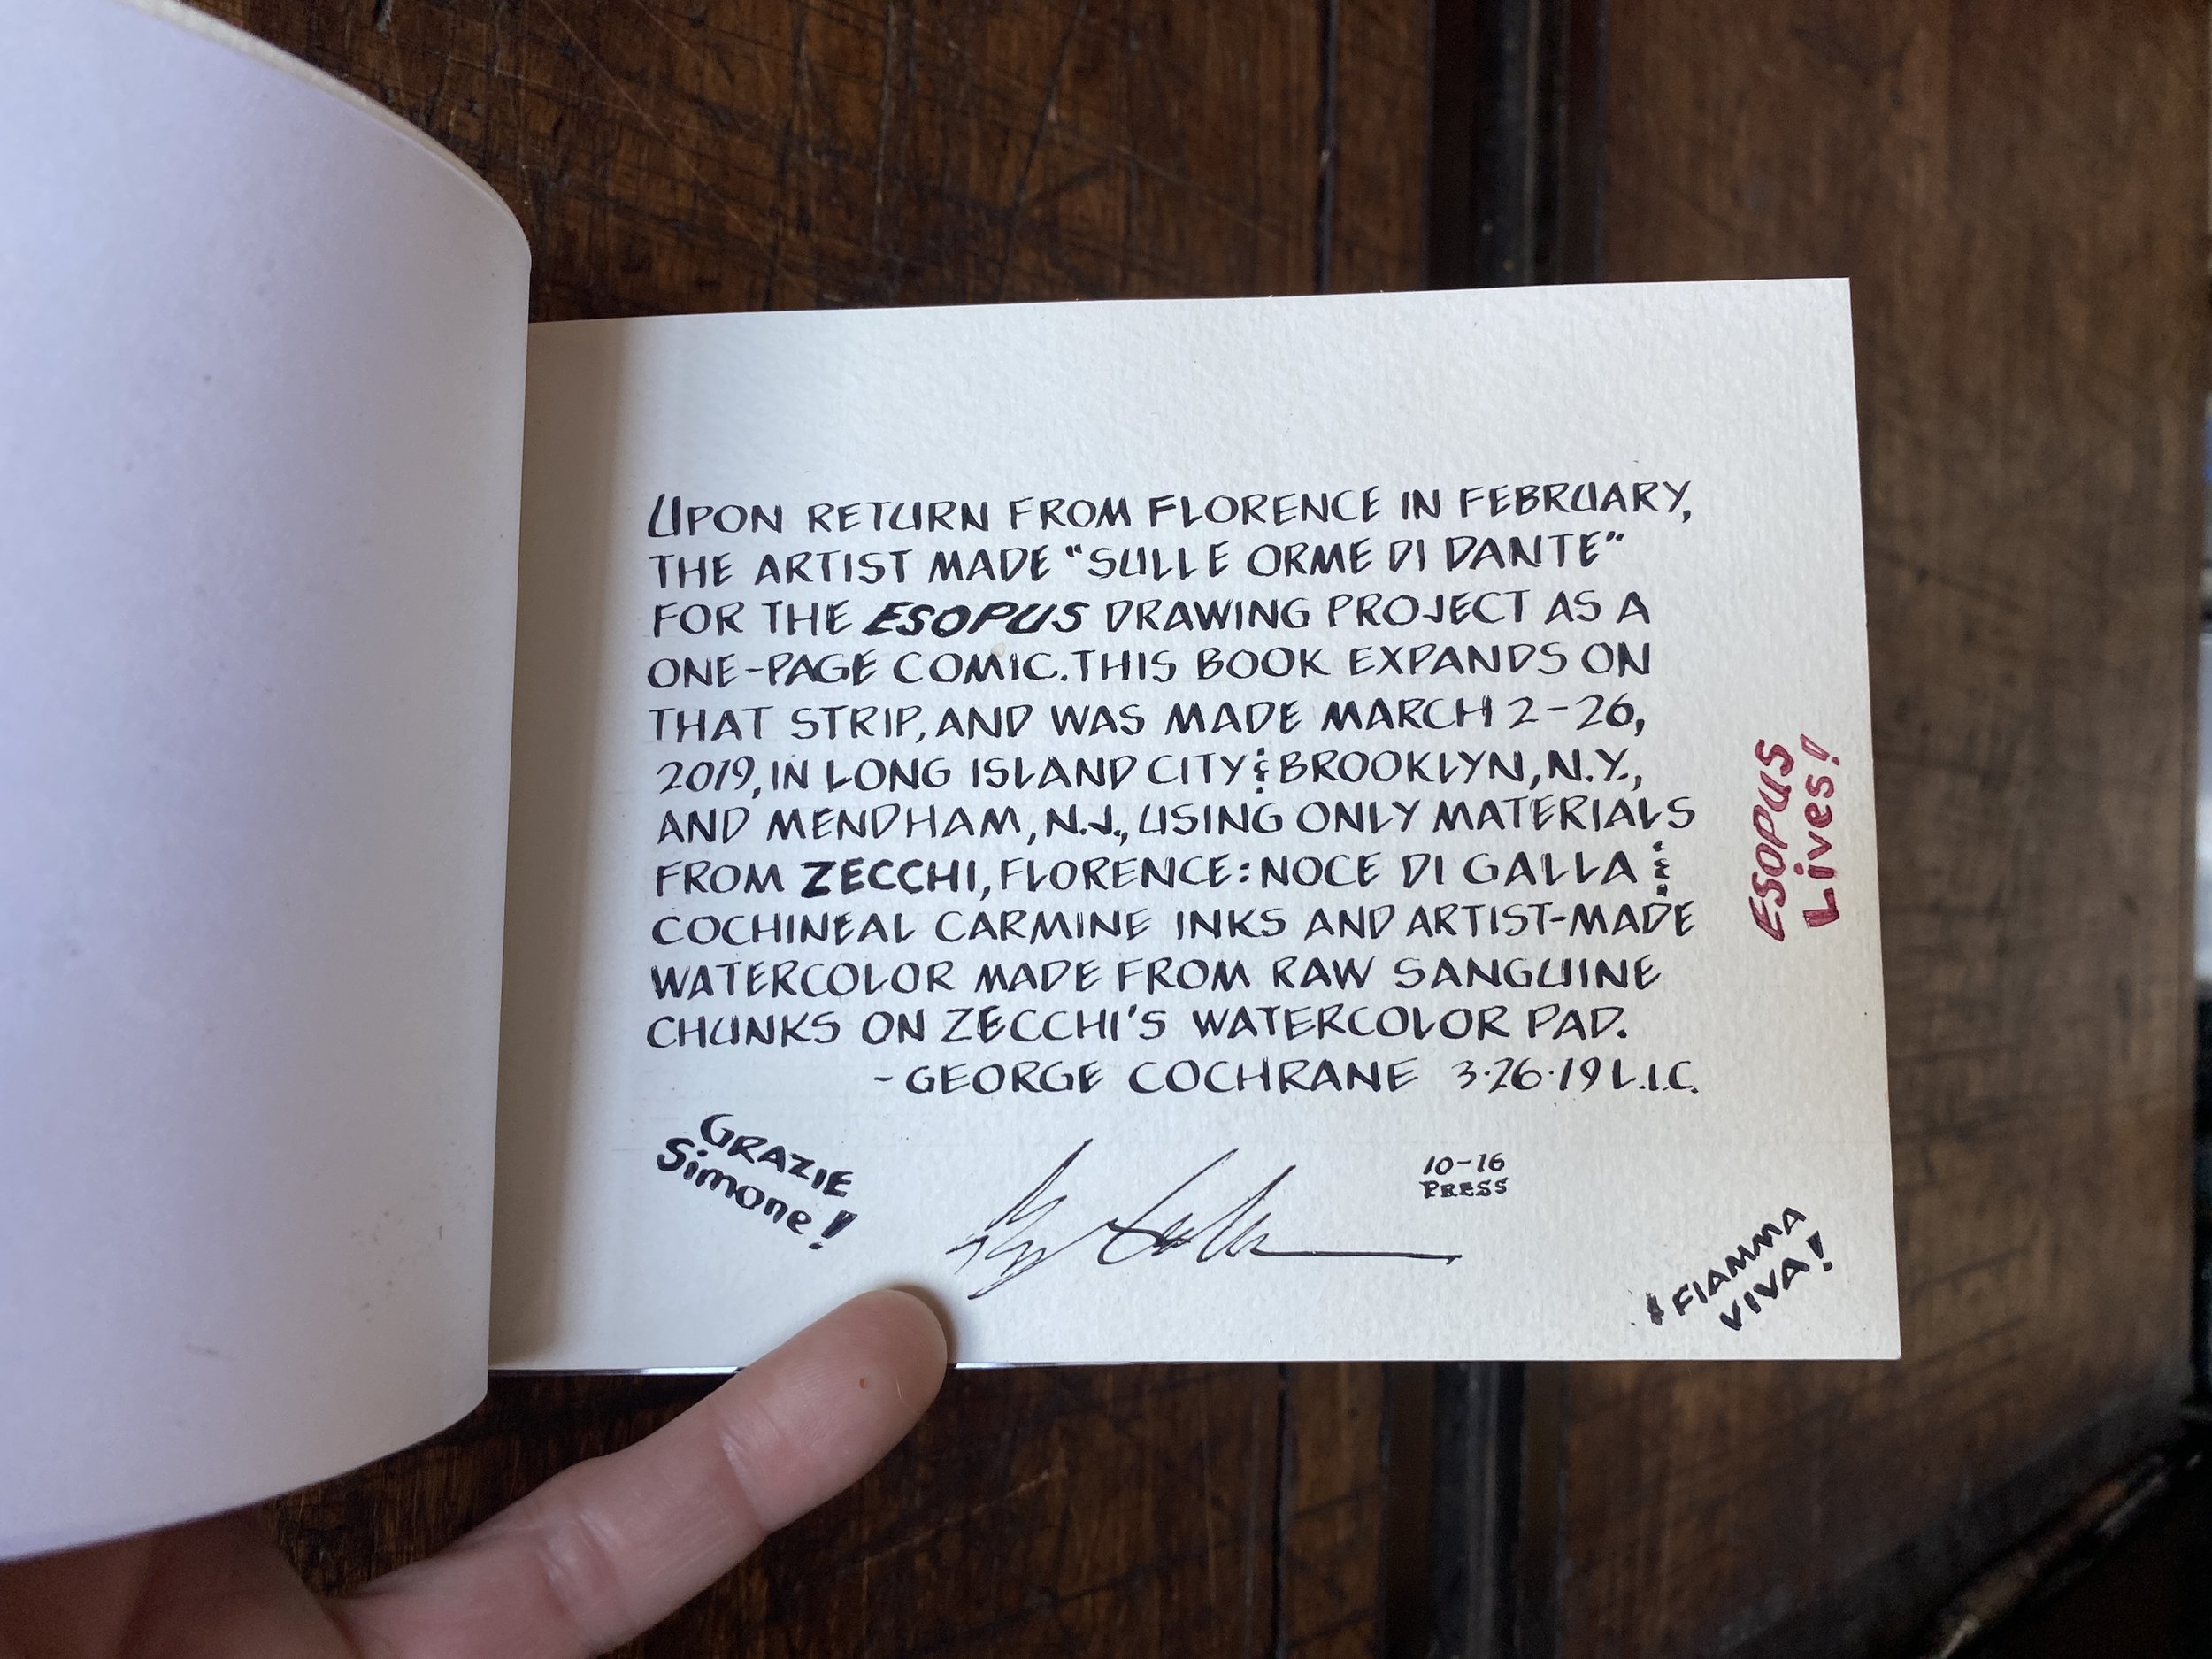 UPON RETURN FROM FLORENCE IN FEBRUARY,
THE ARTIST MADE "SULLE ORME DI DANTE"
FOR THE ESOPUS DRAWING PROJECT AS A
ONE-PAGE COMIC. THIS BOOK EXPANDS ON
THAT STRIP, AND WAS MADE MARCH 2-26,
2019, IN LONG ISLAND CITY & BROOKLYN, N.Y.,
AND MENDHAM, N.J., USING ONLY MATERIALS
FROM ZECCHI, FLORENCE: NOCE DI GALLA &
COCHINEAL CARMINE INKS AND ARTIST-MADE
WATERCOLOR MADE FROM RAW SANGUINE
CHUNKS ON ZECCHI'S WATERCOLOR PAD.
- GEORGE COCHRANE 3·26·19 L.I.C.
GRAZIE
Simone!
10-16
PRESS
¡FIAMMA
VIVA!
ESOPUS
Lives!